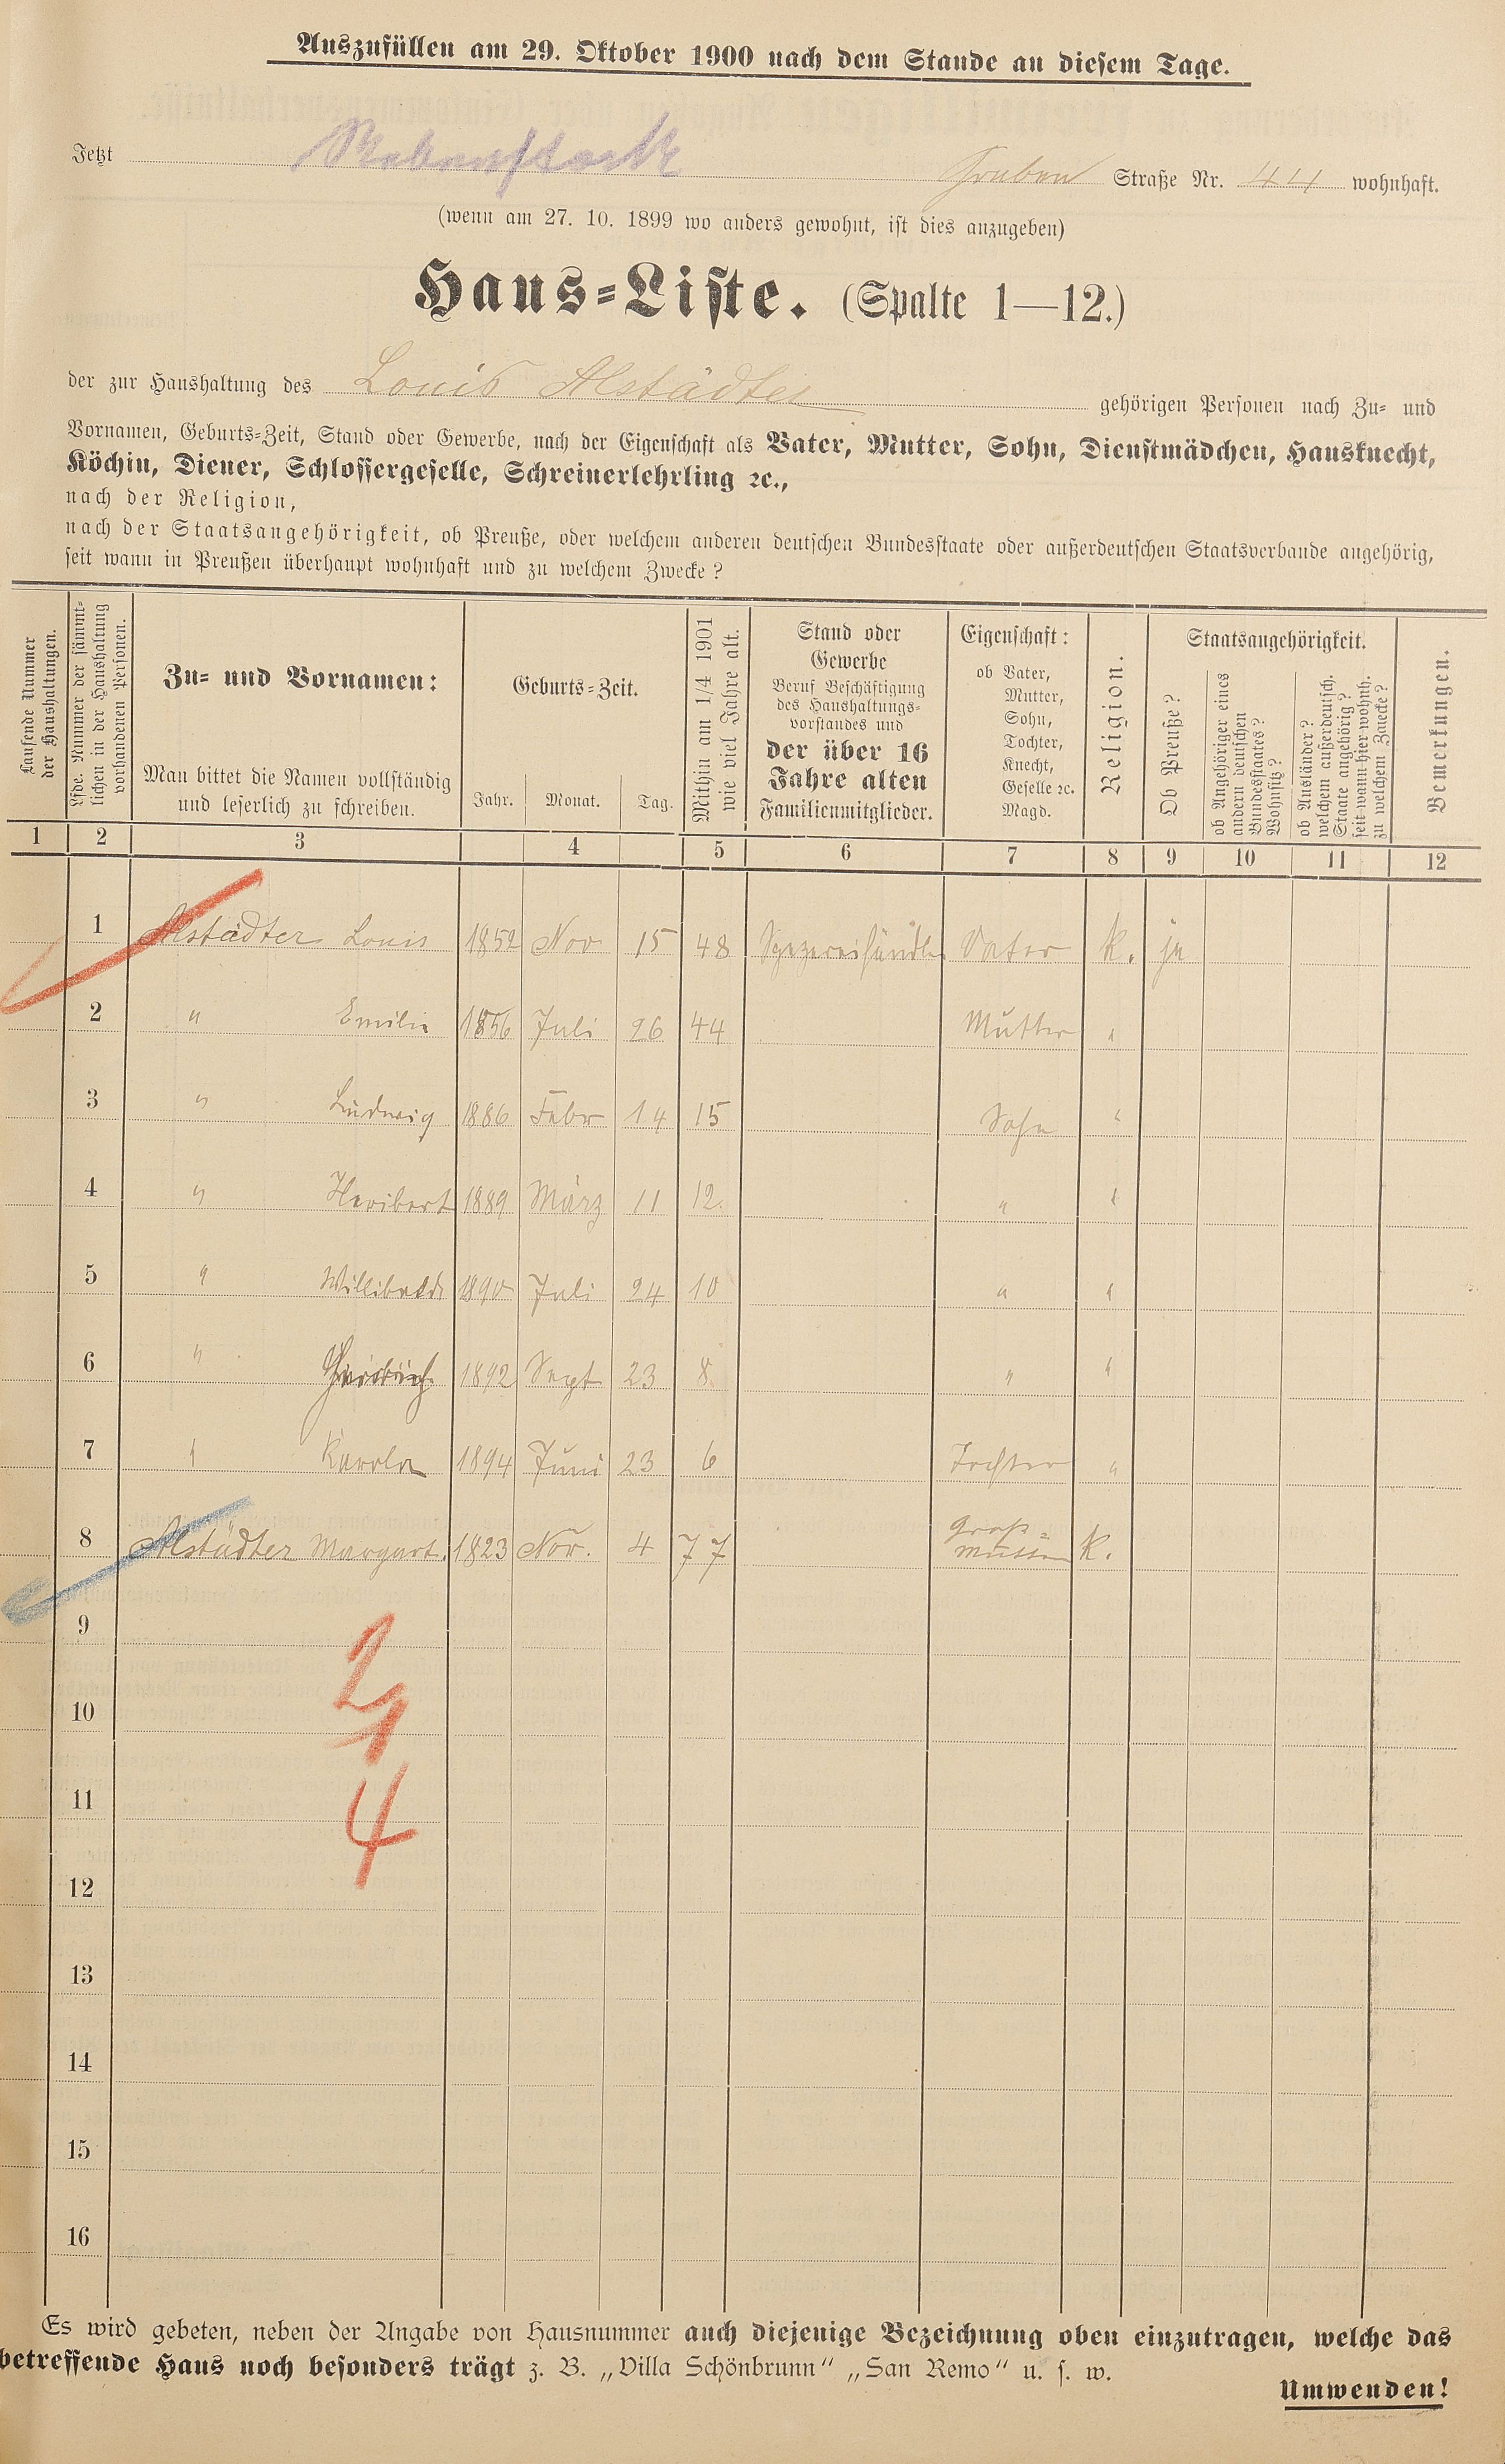 Auszufüllen am 29. Oktober 1900 nach dem Stande an diesem Tage.
Jetzt Rebenstock Graben Straße Nr. 44 wohnhaft.
(wenn am 27. 10. 1899 wo anders gewohnt, ist dies anzugeben)
Haus-Liste. (Spalte 1—12.)
der zur Haushaltung des Louis Alstädter gehörigen Personen nach Zu- und
Vornamen, Geburts-Zeit, Stand oder Gewerbe, nach der Eigenschaft als Vater, Mutter, Sohn, Dienstmädchen, Hausknecht,
Köchin, Diener, Schlossergeselle, Schreinerlehrling ꝛc.,
nach der Religion,
nach der Staatsangehörigkeit, ob Preuße, oder welchem anderen deutschen Bundesstaate oder außerdeutschen Staatsverbande angehörig,
seit wann in Preußen überhaupt wohnhaft und zu welchem Zwecke?
Laufende Nummer
der Haushaltungen.
Lfde. Nummer der sämmt-
lichen in der Haushaltung
vorhandenen Personen.
Zu- und Vornamen:
Man bittet die Namen vollständig
und leserlich zu schreiben.
Geburts-Zeit.
Jahr. Monat. Tag.
Mithin am 1/4 1901
wie viel Jahre alt.
Stand oder
Gewerbe
Beruf Beschäftigung
des Haushaltungs-
vorstandes und
der über 16
Jahre alten
Familienmitglieder.
Eigenschaft:
ob Vater,
Mutter,
Sohn,
Tochter,
Knecht,
Geselle ꝛc.
Magd.
Religion.
Staatsangehörigkeit.
Ob Preuße?
ob Angehöriger eines
andern deutschen
Bundesstaates?
Wohnsitz?
ob Ausländer?
welchem außerdeutsch.
Staate angehörig?
seit wann hier wohnh.
zu welchem Zwecke?
Bemerkungen.
1 2 3 4 5 6 7 8 9 10 11 12
1 Alstädter Louis 1852 Nov 15 48 Spezereihändler Vater k. ja
2 " Emilie 1856 Juli 26 44 Mutter "
3 " Ludwig 1886 Febr 14 15 Sohn "
4 " Heribert 1889 März 11 12. " "
5 " Willibald 1890 Juli 24 10 " "
6 " 1892 Sept 23 8 " "
7 " Karola 1894 Juni 23 6 Tochter "
8 Alstädter Margart. 1823 Nov. 4 77 Groß-
mutter k.
9
2
10
11
4
12
13
14
15
16
Es wird gebeten, neben der Angabe von Hausnummer auch diejenige Bezeichnung oben einzutragen, welche das
betreffende Haus noch besonders trägt z. B. „Villa Schönbrunn“ „San Remo“ u. s. w.
Umwenden!